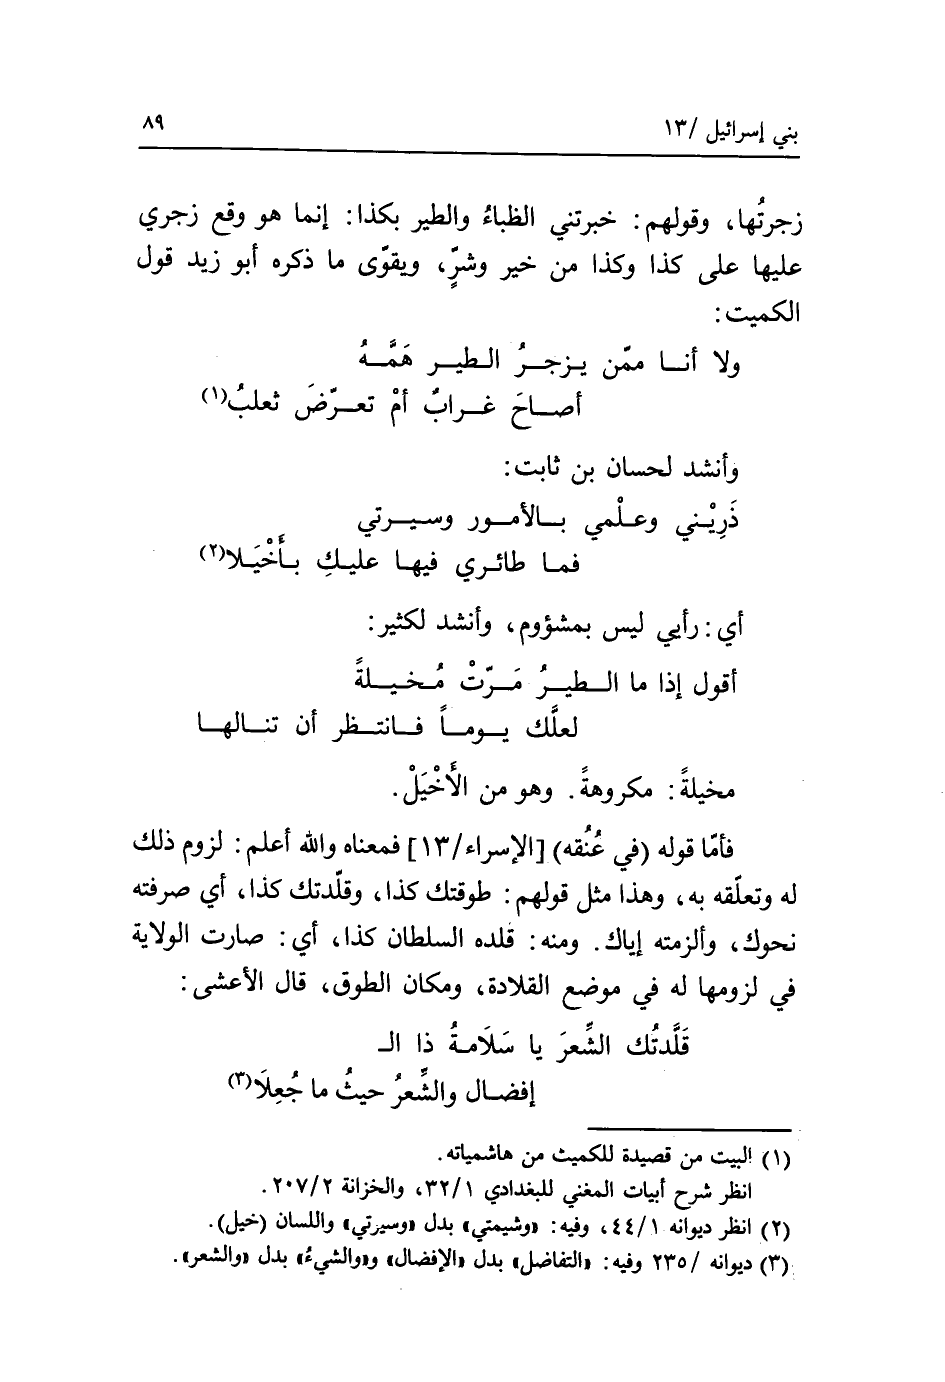 بني إسرائيل /١٣
٨٩
زجرتُها، وقولهم: خبرتني الظباءُ والطير بكذا: إنما هو وقع زجري
عليها على كذا وكذا من خير وشرٍّ، ويقوّى ما ذكره أبو زيد قول
الكميت:
ولا أنـا ممّن يـزجـرُ الـطيـر هَمَّـهُ
أصـاحَ غـرابٌ أمْ تعـرّضَ ثعلبُ(١)
وأنشد لحسان بن ثابت:
ذَرِيْـني وعـلْمي بـالأمـور وسيـرتي
فمـا طائـري فيهـا عليـكِ بـأَخْيَـلا(٢)
أي: رأيي ليس بمشؤوم، وأنشد لكثير:
أقول إذا ما الـطيـرُ مَـرّتْ مُـخيـلةً
لعلَّك يـومـاً فـانتـظر أن تنـالهـا
مخيلةً: مكروهةً. وهو من الأَخْيَلْ.
فأمّا قوله (في عُنُقه) [الإسراء/١٣] فمعناه والله أعلم: لزوم ذلك
له وتعلّقه به، وهذا مثل قولهم: طوقتك كذا، وقلّدتك كذا، أي صرفته
نحوك، وألزمته إياك. ومنه: قلده السلطان كذا، أي: صارت الولاية
في لزومها له في موضع القلادة، ومكان الطوق، قال الأعشى:
قَلَّدتُك الشِّعرَ يا سَلَامـةُ ذا الـ
إفضـال والشِّعرُ حيثُ ما جُعِلَا(٣)
(١) البيت من قصيدة للكميت من هاشمياته.
انظر شرح أبيات المغني للبغدادي ٣٢/١، والخزانة ٢٠٧/٢.
(٢) انظر ديوانه ٤٤/١، وفيه: «وشيمتي» بدل «وسيرتي» واللسان (خيل).
(٣) ديوانه /٢٣٥ وفيه: «التفاضل» بدل «الإفضال» و«والشيءُ» بدل «والشعر».